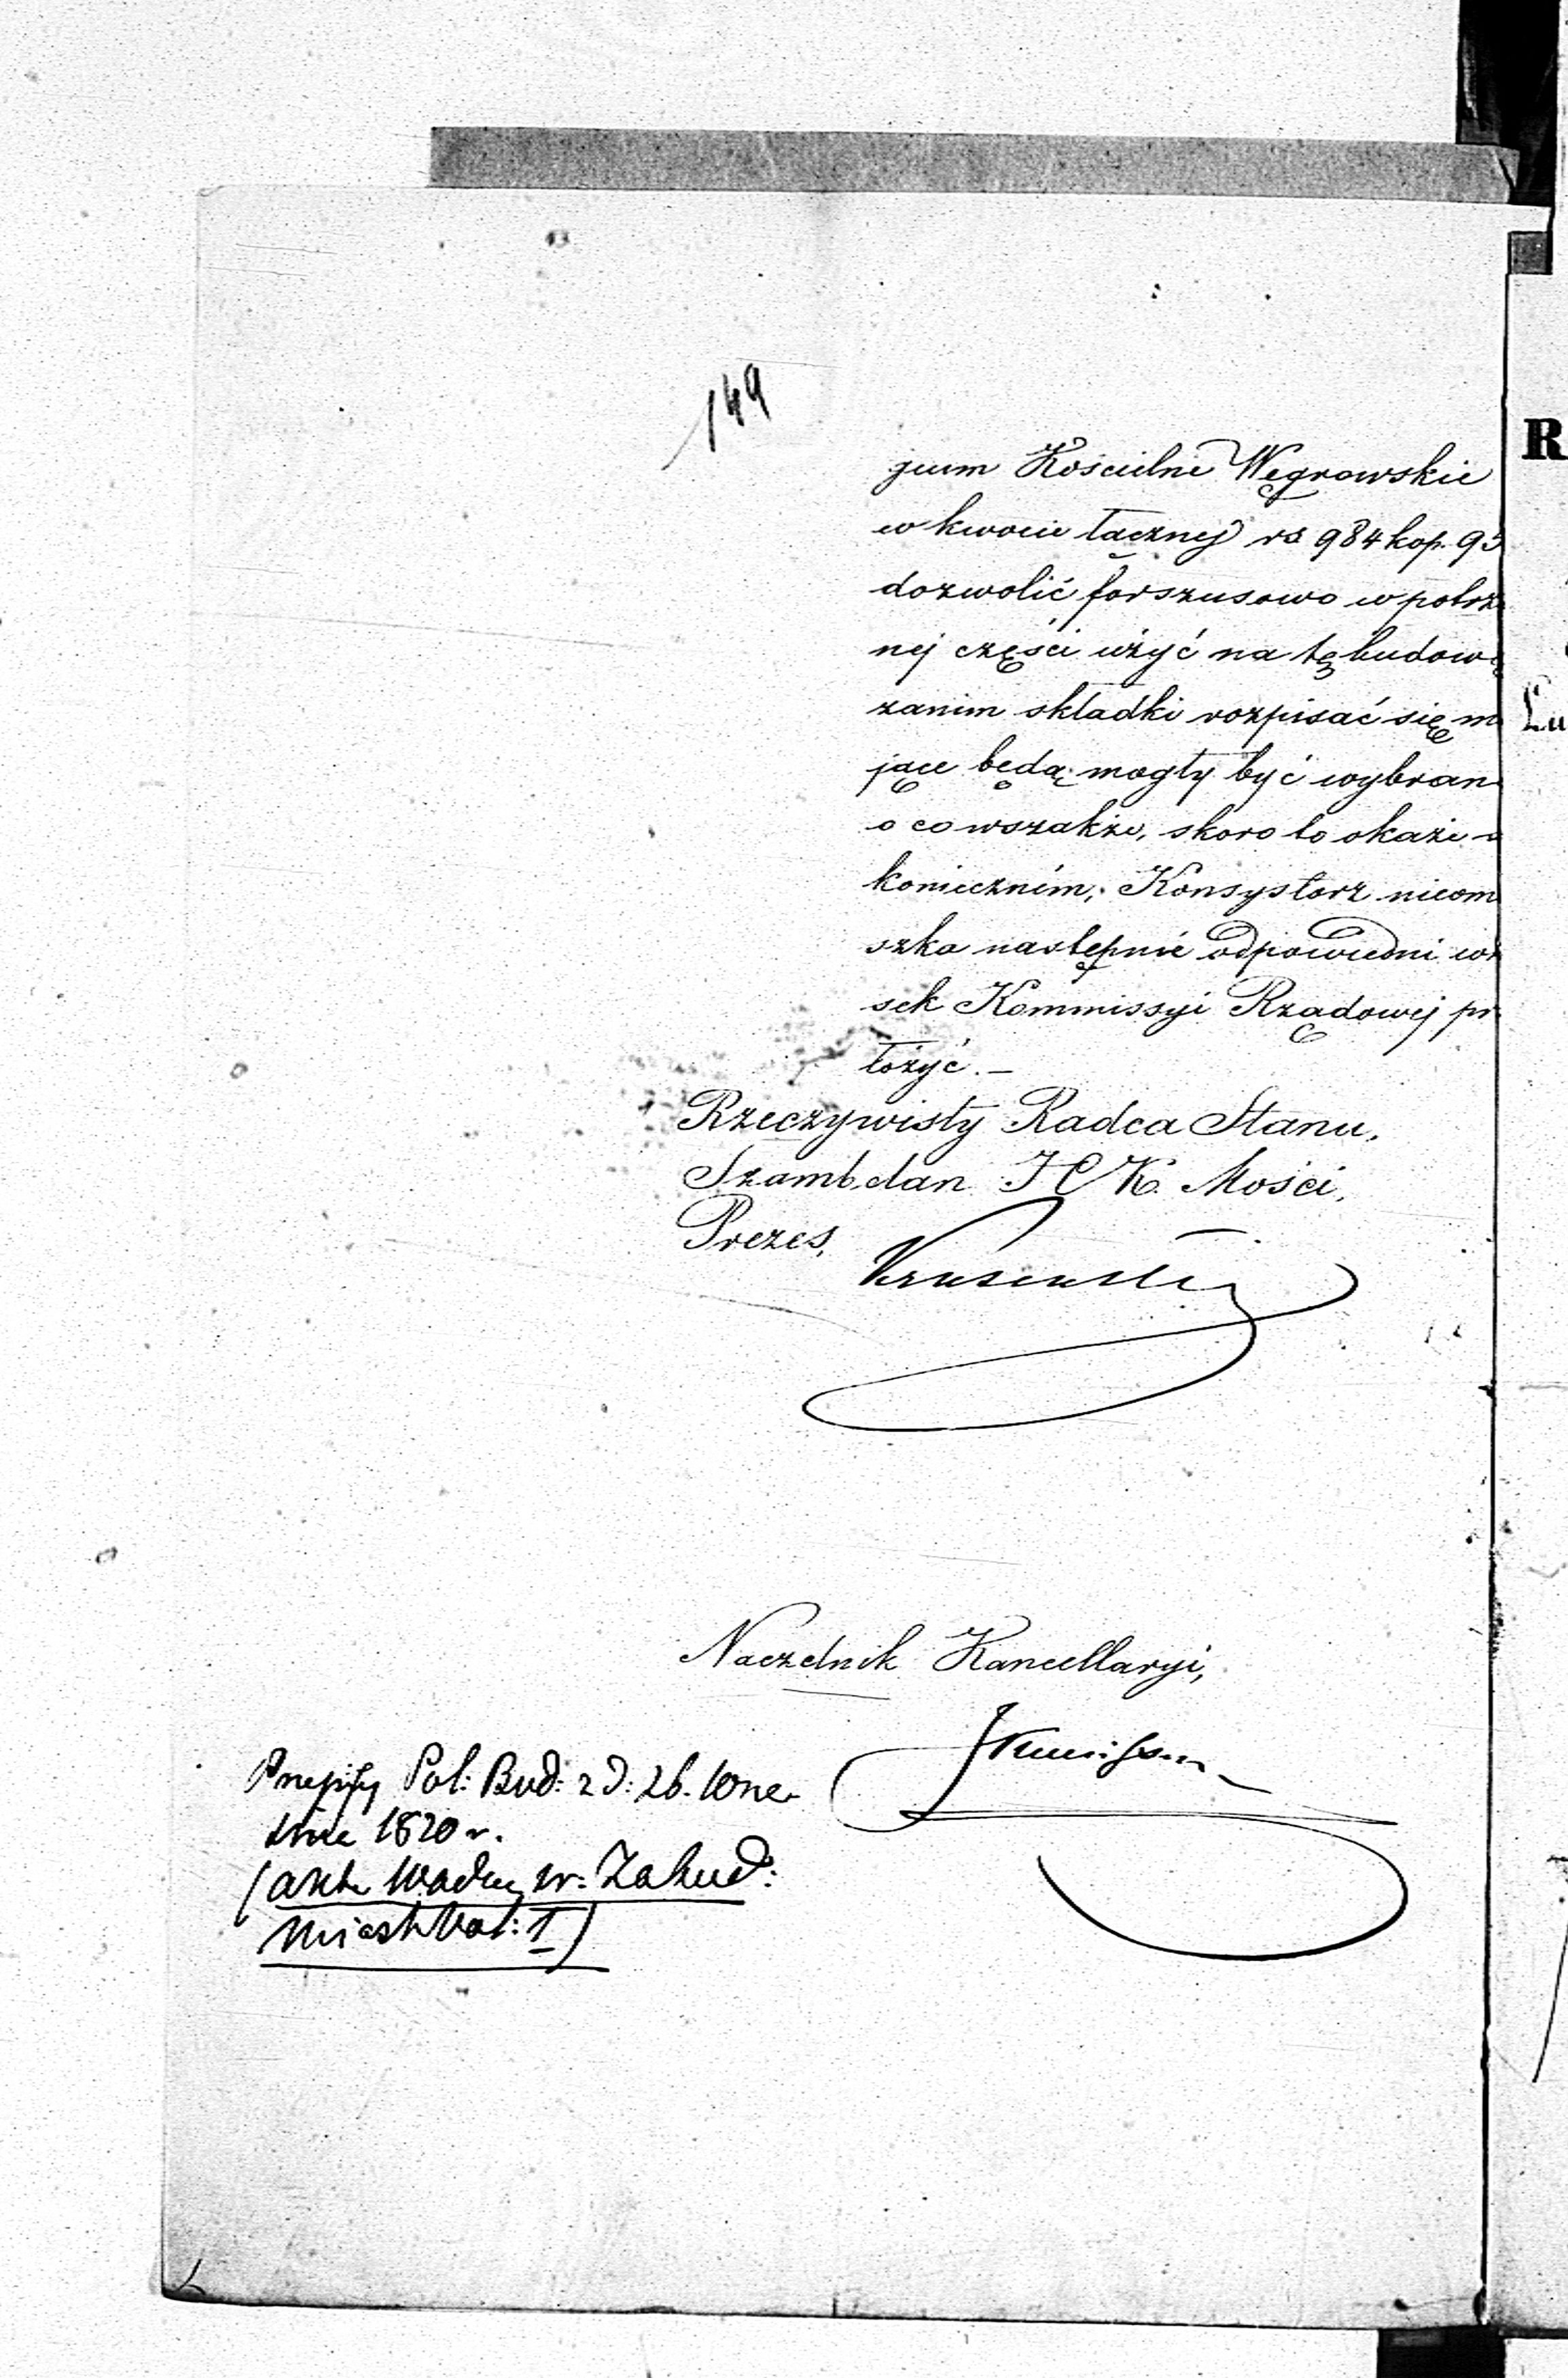 149
gium Kościelne Węgrowskie
w kwocie łącznej rs 984 kop. 93
dozwolić forszusowo w potrze
nej części użyć na tę budowę
zanim składki rozpisać się m
jące będą mogły być wybran
o co wszakże, skoro to okaże
konieczném, Konsystorz nieom
szka następnie odpowiedni wn
sek Kommissyi Rządowej pr
łożyć.—
Rzeczywisty Radca Stanu,
Szambelan JCK Mości,
Prezes,
Naczelnik Kancellaryi,
Przepisy Pol: Bud: z d: 26.
1820 r.
(akta
Miast Vol: I)
R
Lu